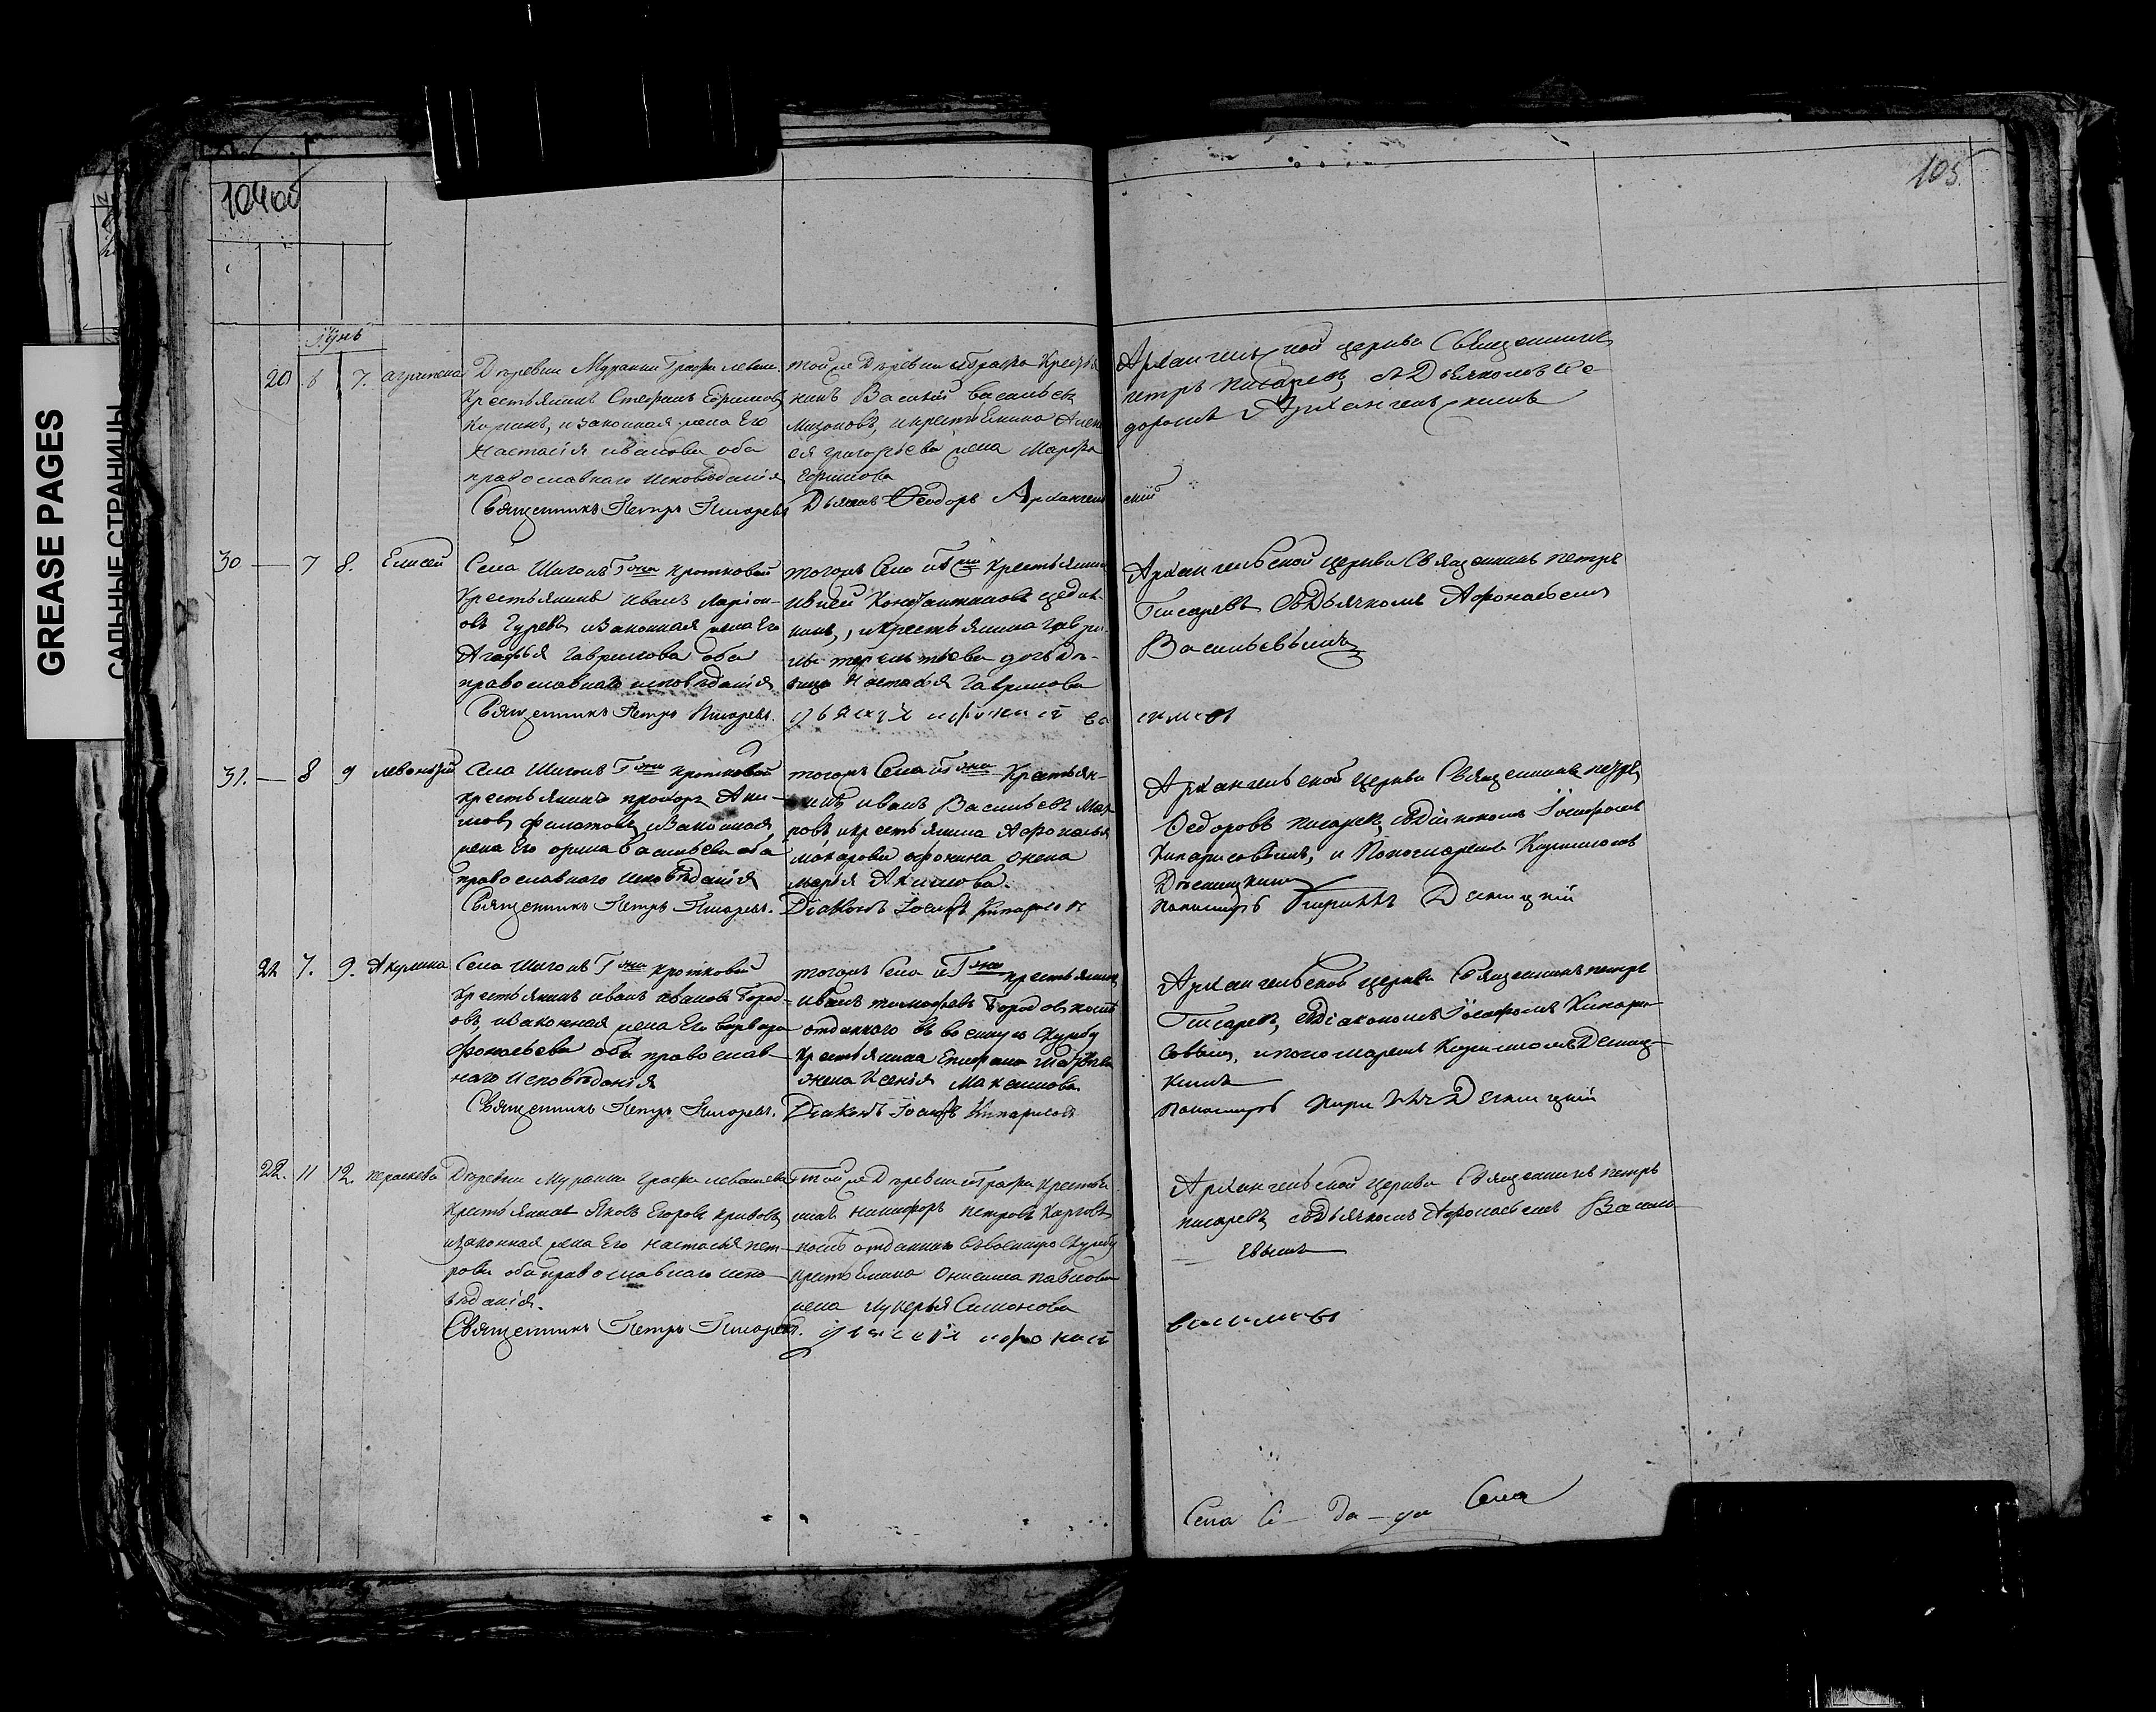 GREASE PAGES
САЛЬНЫЕ СТРАНИЦЫ
104об
105.
Іунь
20 6 7. Агрипена
Деревни Муранки Графа Леваше
Крестьянинъ Стефанъ Ефимовъ
и законная жена Его
Настасія иванова оба
православнаго исповѣданія
Священникъ Петръ Писаревъ
тойже Деревни Графа Крестья
нинъ Василій васильевъ
и крестьянина Алек
ѣя григорьева жена Марфа
Ефимова
Дьячекъ Ѳеодоръ Архангель
скій
Архангельской церкви Священникъ
петръ писаревъ, съ Дьячкомъ Ѳе
доромъ Архангельскимъ
30 — 7 8. Елисей
Села Шигонъ Гжи кротковой
Крестьянинъ иванъ Ларіон-
овъ Гурьевъ и законная жена Его
Агафья гаврилова оба
православнаго исповѣданія
Священникъ Петръ Писаревъ.
тогожъ Села Гжи Крестьянинъ
Константиновъ
и крестьянина Гаври
лы терентьева дочь дѣ-
вица Настасья Гаврилова
Архангельской церкви Священникъ петръ
Писаревъ съ Дьячкомъ Афонасьемъ
Васильевымъ
31. — 8 9 левонтій
Села Шигонъ Гжи кротковой
крестьянинъ прохоръ Аки-
мовъ филатовъ и законная
жена Его орина васильева оба
православнаго исповѣданія
Священникъ Петръ Писаревъ.
тогожъ Села Гжи Крестьян-
инъ иванъ Васильевъ Мак
ровъ и крестьянина Афонасья
макарова афонина жена
марья Акимова.
Діаконъ Іосифъ Кипарисовъ
Архангельской церкви Священникъ петръ
Ѳедоровъ писаревъ, съ Діакономъ Іосифомъ
Кипарисовымъ, и Пономаремъ Кириломъ
Десницкимъ
пономарь Кириллъ Десницкій
21 7. 9. Акулина
Села Шигонъ Гжи кротковой
Крестьянинъ иванъ ивановъ Город-
овъ, и законная жена Его варвара
фокеева оба православ-
наго исповѣданія
Священникъ Петръ Писаревъ.
тогожъ Села Гжи крестьянинъ
иванъ тимофеевъ Городовъ
отданнаго въ военную службу
Крестьянина Епифана Матвѣева
жена Ксенія Максимова
Діаконъ Іосифъ Кипарисовъ
Архангельской церкви Священникъ петръ
Писаревъ, съ Діакономъ Іосифомъ Кипари-
совымъ, и пономаремъ Кириломъ Десниц-
кимъ
пономарь Кириллъ Десницкій
22. 11 12. пераскева
Деревни Муранки Графа левашева
Крестьянинъ Яковъ Егоровъ кривовъ
и законная жена Его настасья пет-
рова оба православнаго испо-
вѣданія.
Священникъ Петръ Писаревъ.
Тойже Деревни Графа Крестья
нинъ никифоръ петровъ Карповъ
отданнаго въ военную службу
крестьянина Онисима павлова
жена лукерья Симонова
Архангельской церкви Священникъ петръ
писаревъ съ Дьячкомъ Афонасьемъ Василь-
евымъ
васильевъ
Села